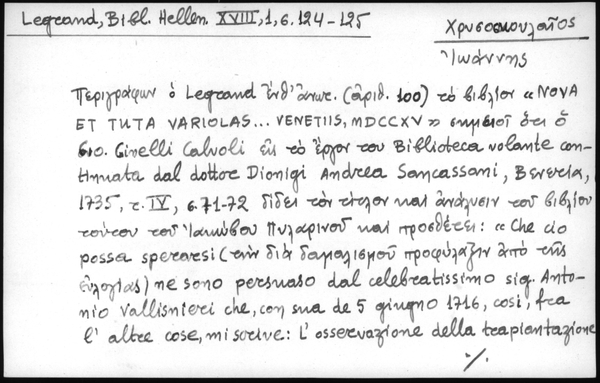 Legrand, Bibl. Hellen. XVIII, 1, σ. 124-125
Χρυσοσκουλαῖος
Ἰωάννης
Περιγράφων ὁ Legrand ἔνθ' ἄνωτ. (ἀριθ. 100) τὸ βιβλίον «NOVA
ET TUTA VARIOLAS... VENETIIS, MDCCXV» σημειοῖ ὅτι ὁ
Gio. Cinelli Calvoli εἰς τὸ ἔργον του Biblioteca volante con-
tinnata dal dottore Dionigi Andrea Sancassani, Βενετία,
1735, τ. IV, σ. 71-72 δίδει τὸν τίτλον καὶ ἀνάλυσιν τοῦ βιβλίου
τούτου τοῦ Ἰακώβου Πυλαρινοῦ καὶ προσθέτει: «Che cio
possa sperarsi (τὴν διὰ δαμαλισμοῦ προφύλαξιν ἀπὸ τῆς
εὐλογίας) me sono persuaso dal celebratissimo sig. Anto-
nio Vallisnieri che, con sua de 5 giugno 1716, cosi, fra
l' altre cose, mi scrive: L' osservazione della trapiantazione
./.